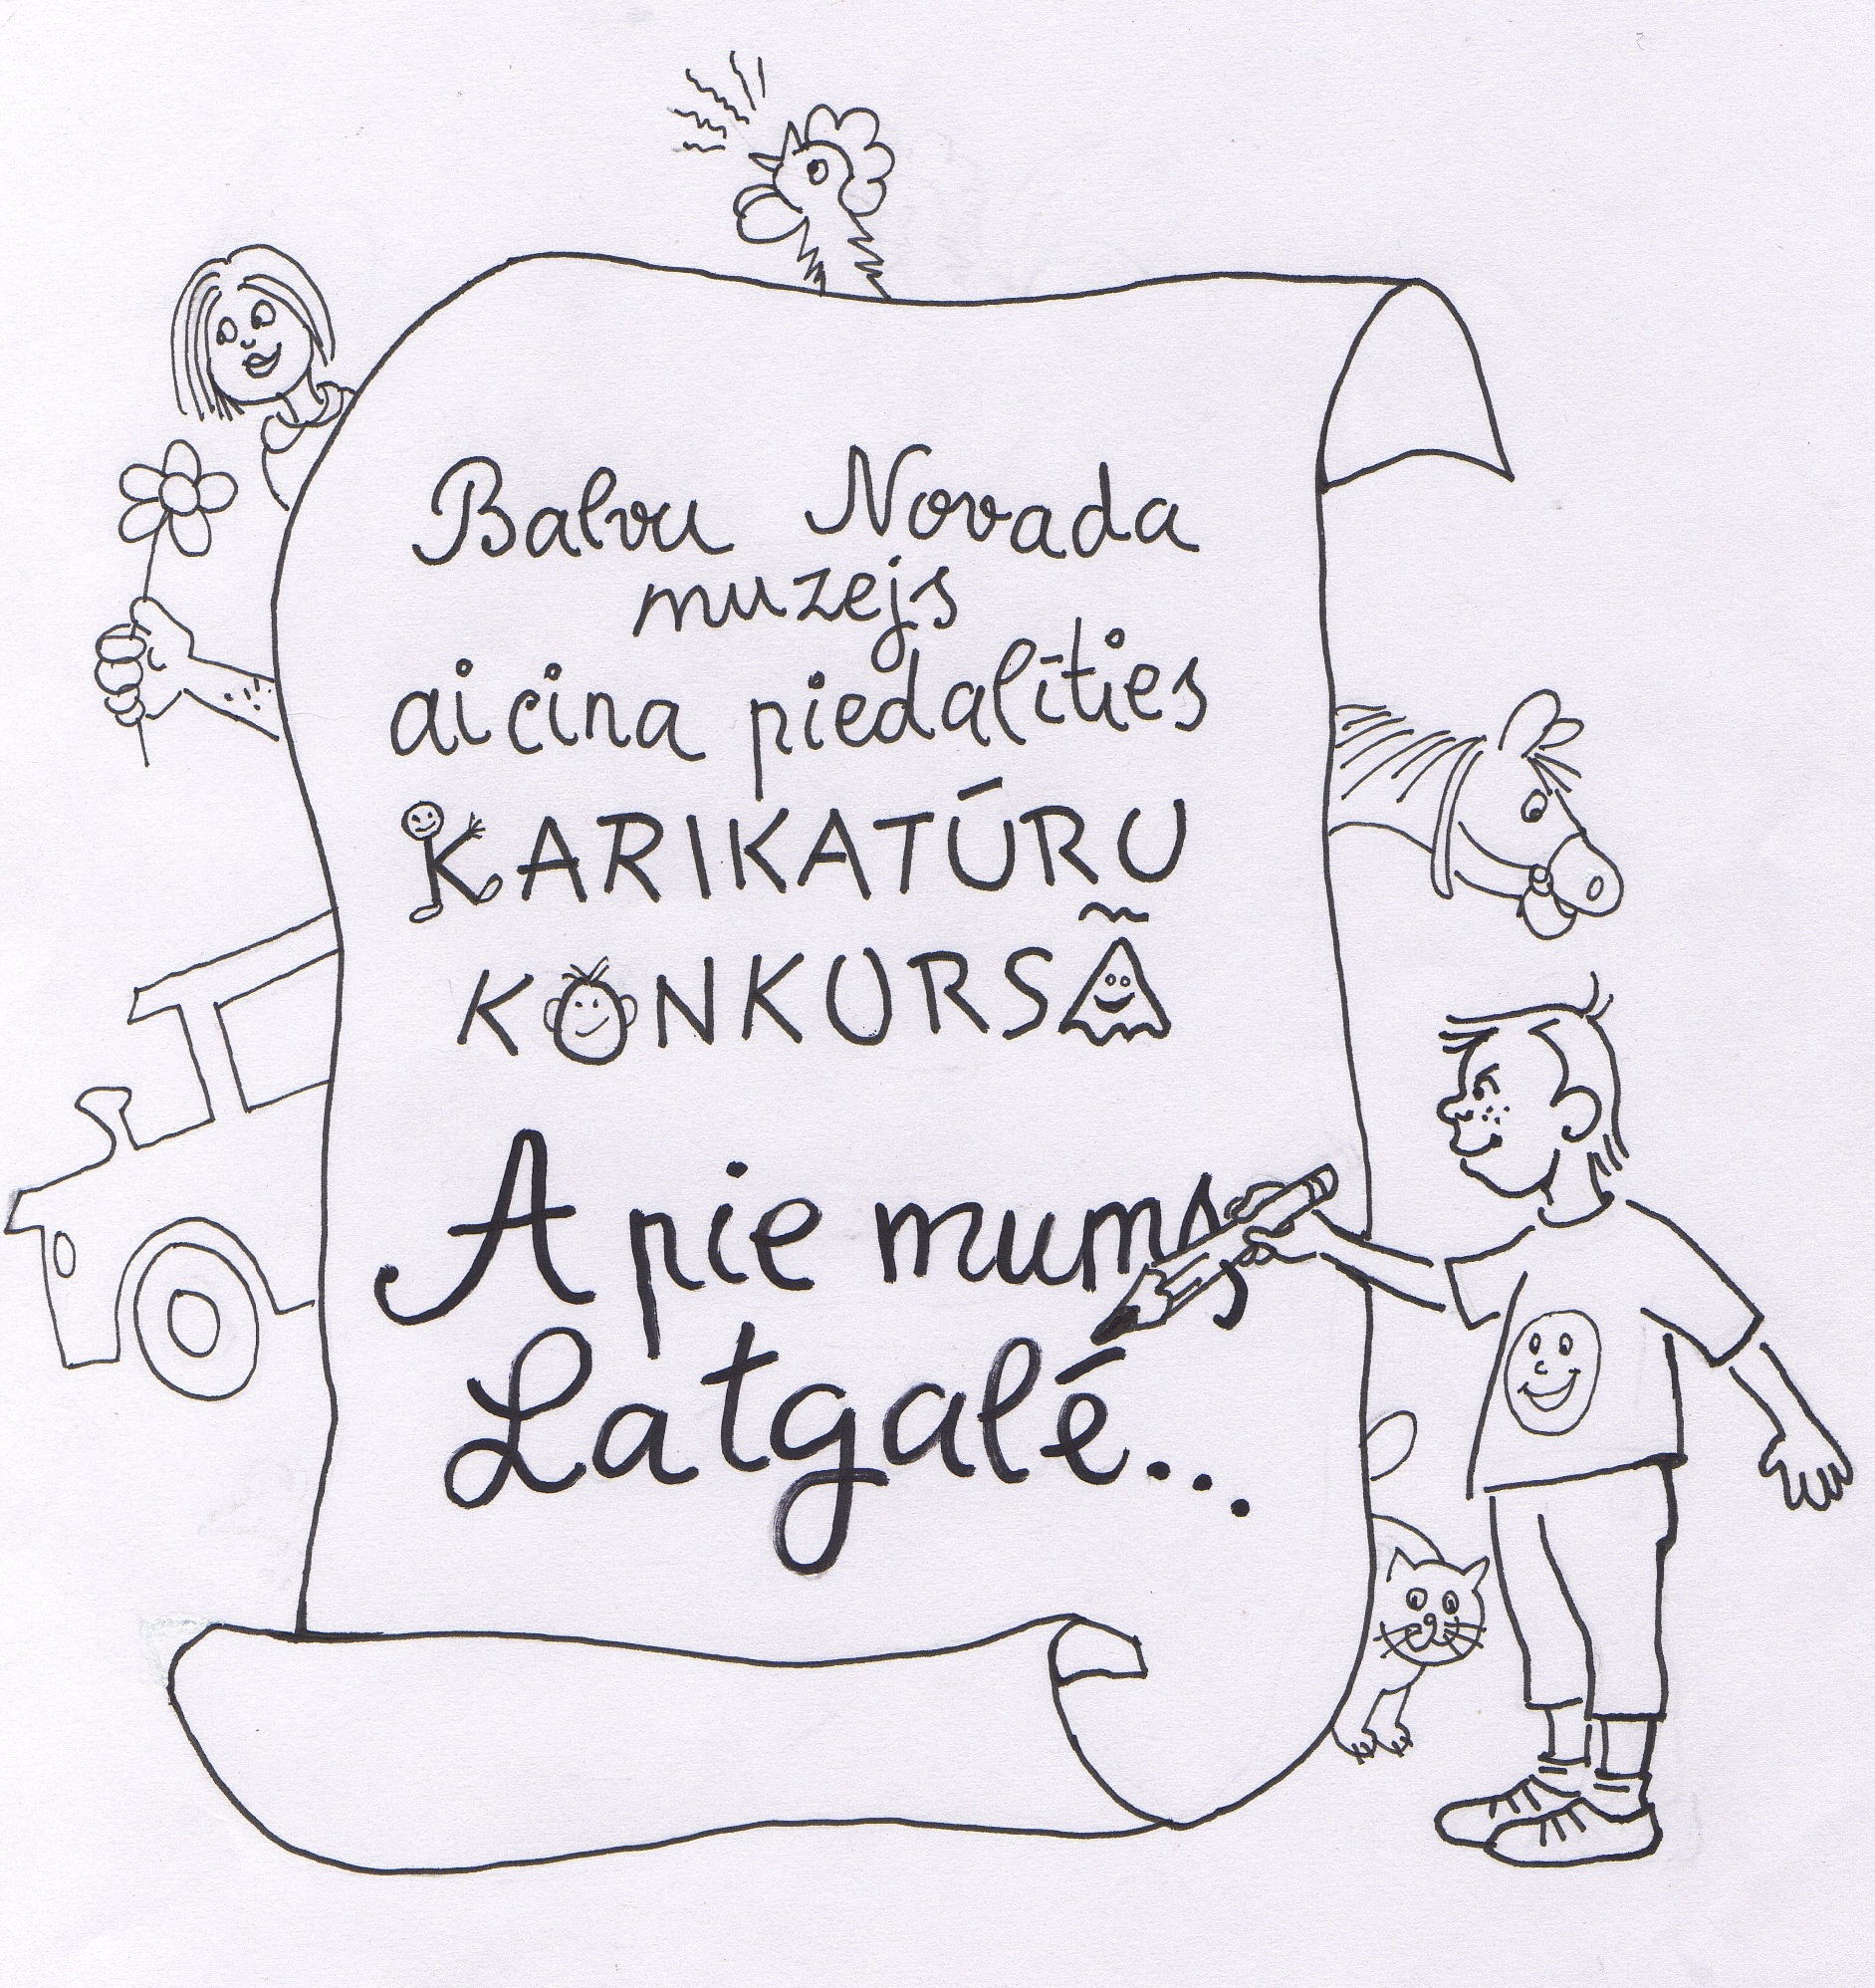 Balvu Novada
muzejs
aicina piedalīties
KARIKATŪRU
KONKURSĀ
A pie mums
Latgalē...